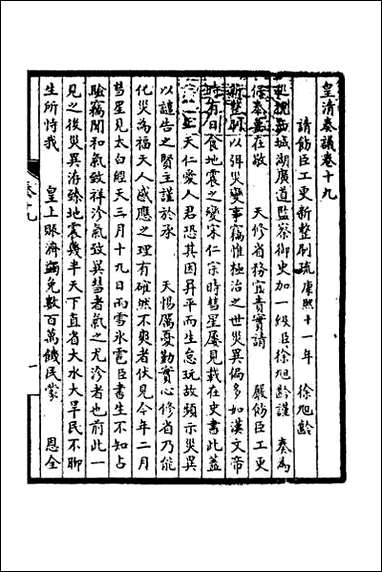 皇清奏議卷十九
請飭臣工更新整刷疏康熙十一年 徐旭齡
巡視西城湖廣道監察御史加一級臣徐旭齡謹 奏為
天修省務宜責實請 嚴飭臣工更
以弭災變事竊惟極治之世災異偏多如漢文帝
時有日食地震之變宋仁宗時彗星屢見載在史書此蓋
天仁愛人君恐其因昇平而生怠玩故頻示災異
以譴告之賢主謹於承 天惕厲憂勤實心修省乃能
化災為福天人感應之理有確然不爽者伏見今年二月
彗星見太白經天三月十九日雨雪氷雹臣書生不知占
騐竊聞和氣致祥沴氣致異彗者氣之尤沴者也前此一
見之後災異洊臻地震幾半天下直省大水大旱民不聊
生所恃我 皇上賑濟蠲免數百萬饑民蒙 恩全
奏十九
一